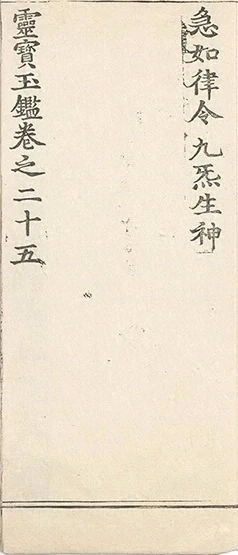 急如律令九炁生神
靈寳玉鑑卷之二十五